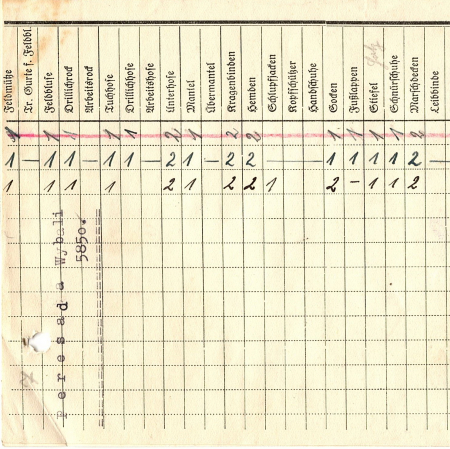 Feldmütze
Tr. Gurte f. Feldbl.
Feldbluse
Drillichrock
Arbeitsrock
Tuchhose
Drillichhose
Arbeitshose
Unterhose
Mantel
Übermantel
Kragenbinden
Hemden
Schlupfjacken
Kopfschützer
Handschuhe
Socken
Fußlappen
Stiefel
Schnürschuhe
Marschdecken
Leibbinde
1 1 1 1 1 2 1 2 2 1 1 1 1 2
1 — 1 1 — 1 1 — 2 1 — 2 2 — 1 1 1 1 2 —
1 1 1 1 2 1 2 2 1 2 – 1 1 2
Peresada Wybali
5850.